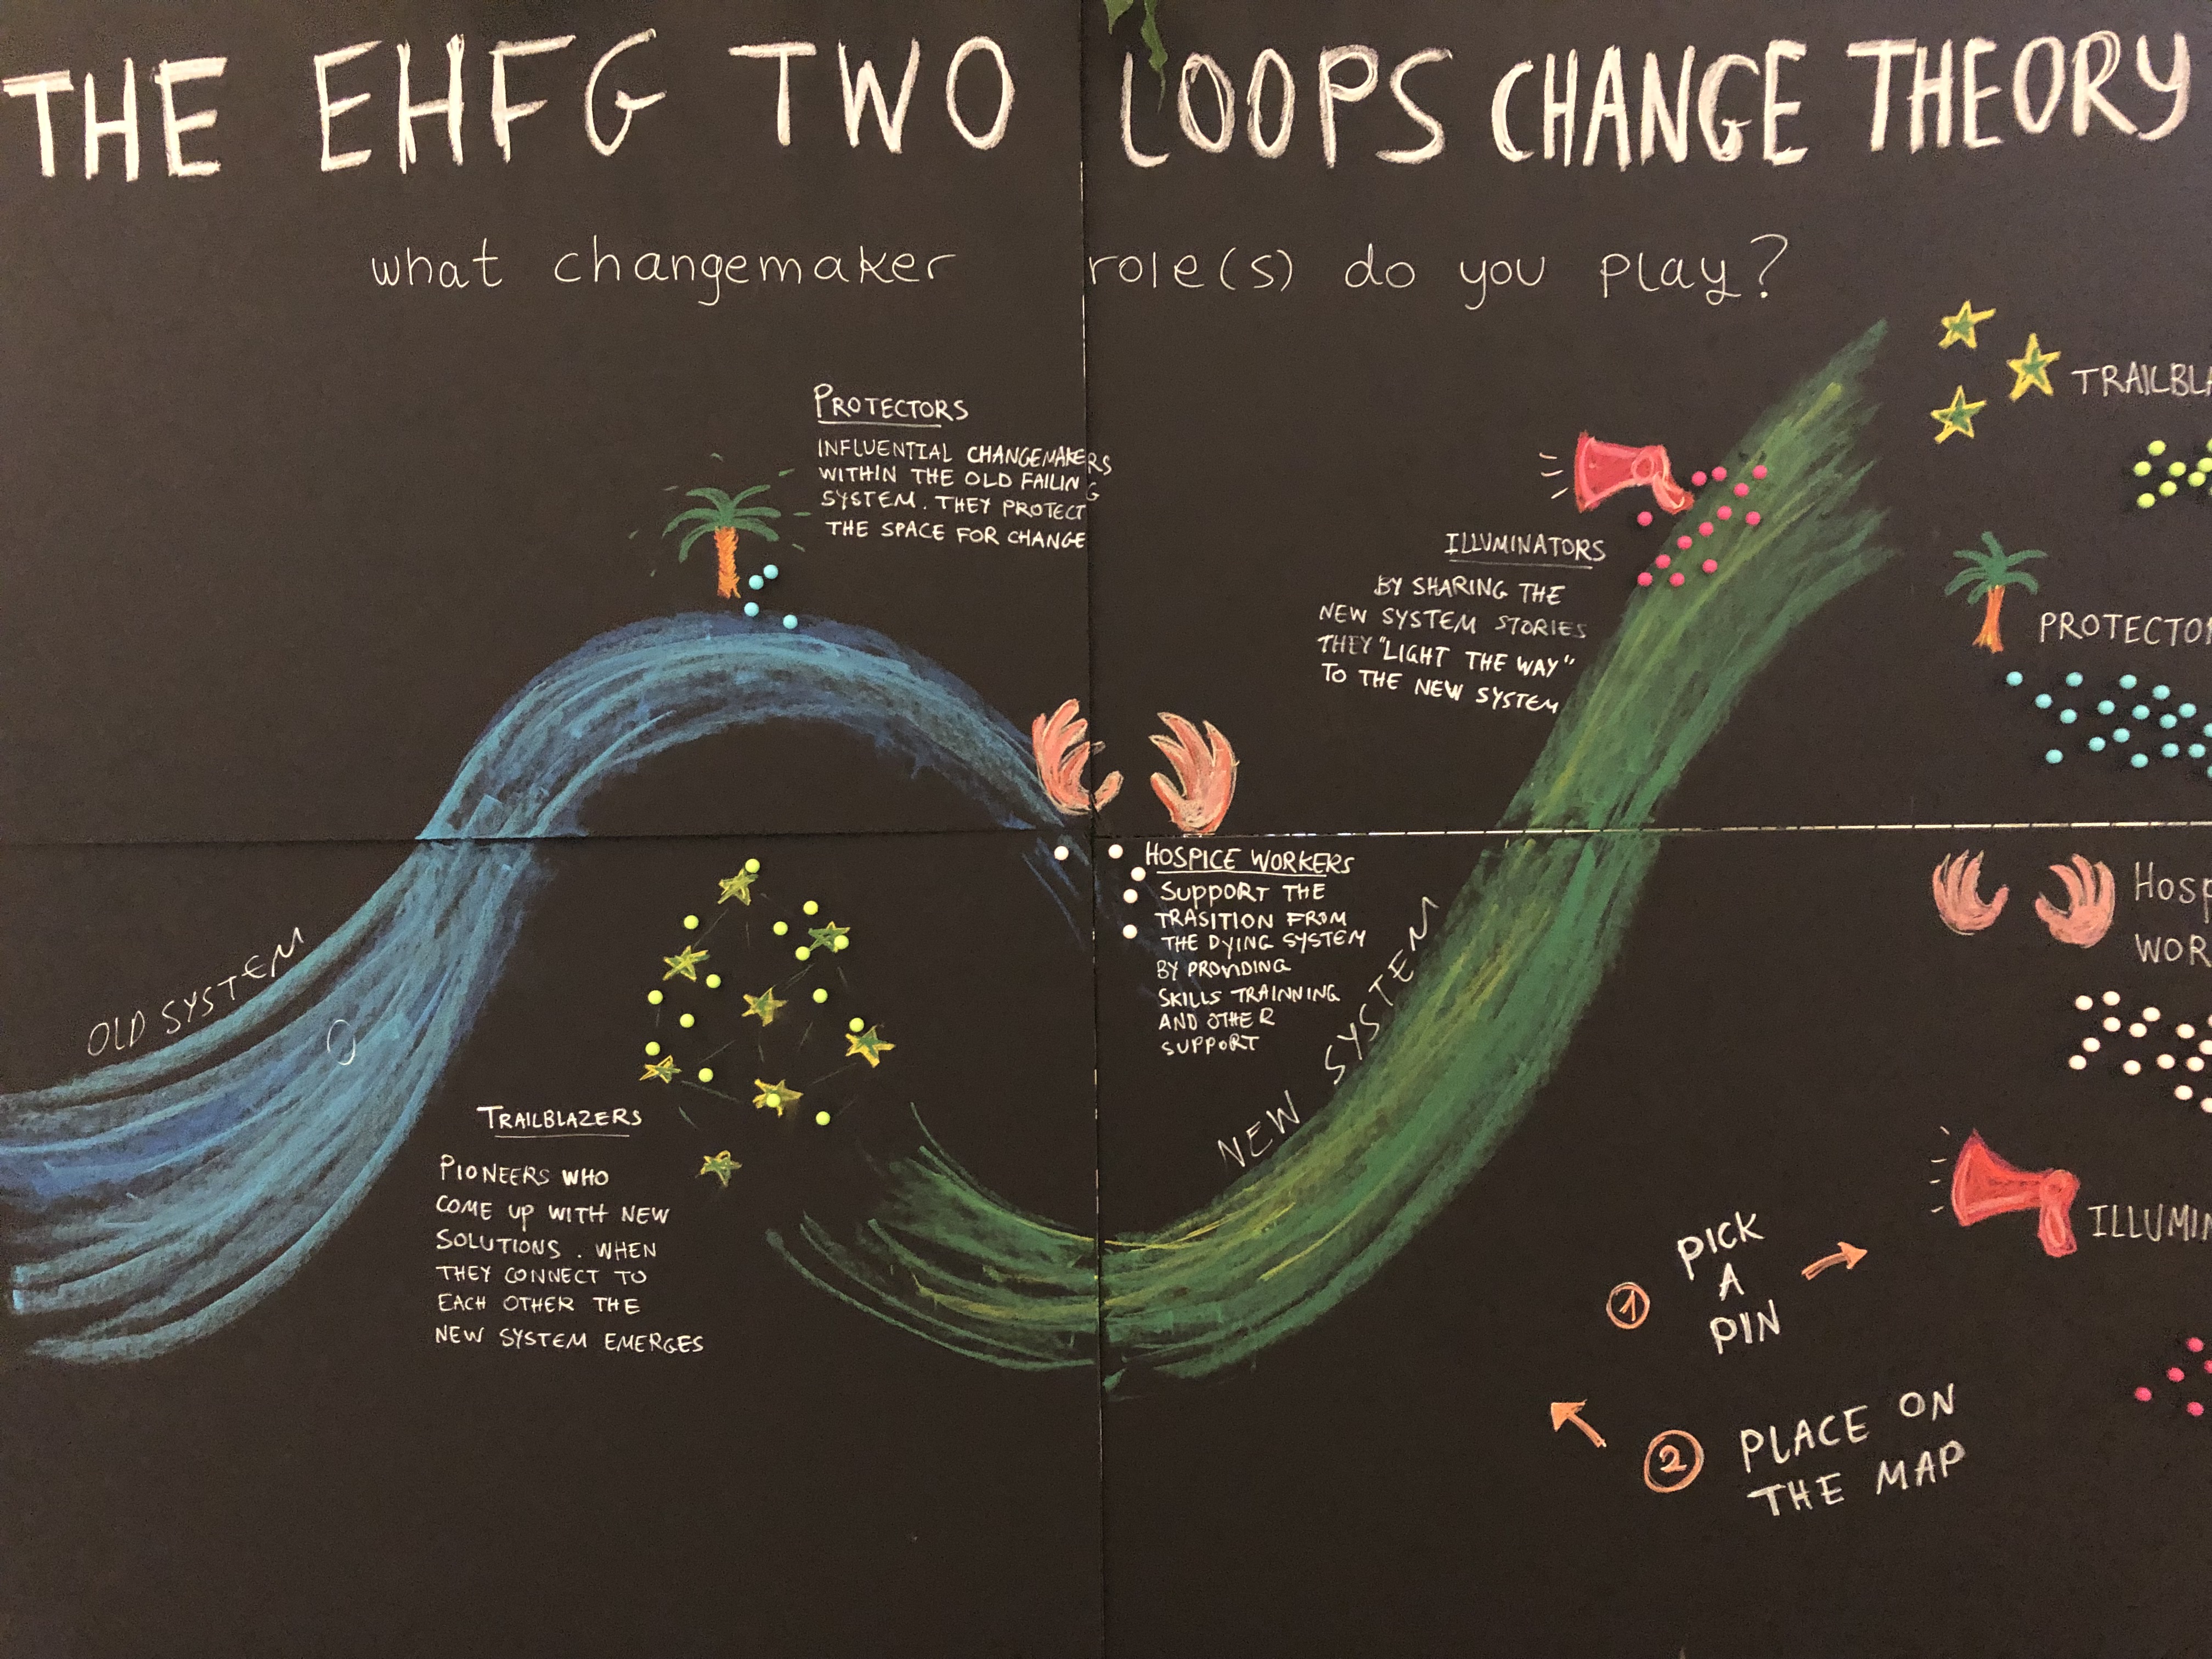 THE EHFG TWO LOOPS CHANGE THEORY
what changemaker role(s) do you play?
PROTECTORS
INFLUENTIAL CHANGEMAKERS
WITHIN THE OLD FAILING
SYSTEM. THEY PROTECT
THE SPACE FOR CHANGE
ILLUMINATORS
BY SHARING THE
NEW SYSTEM STORIES
THEY "LIGHT THE WAY"
TO THE NEW SYSTEM
OLD SYSTEM
HOSPICE WORKERS
SUPPORT THE
TRASITION FROM
THE DYING SYSTEM
BY PROVIDING
SKILLS TRAINNING
AND OTHER
SUPPORT
NEW SYSTEM
TRAILBLAZERS
PIONEERS WHO
COME UP WITH NEW
SOLUTIONS. WHEN
THEY CONNECT TO
EACH OTHER THE
NEW SYSTEM EMERGES
TRAILBLA
PROTECTO
HOSP
WOR
ILLUMIN
1 PICK
A
PIN
2 PLACE ON
THE MAP